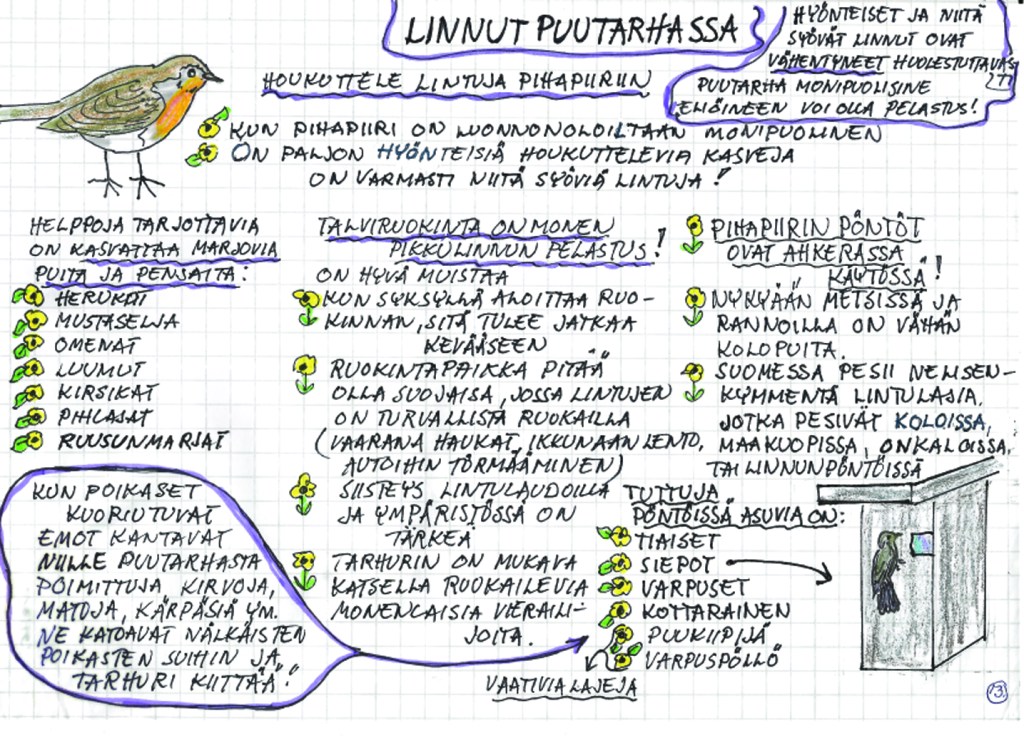 LINNUT PUUTARHASSA
HYÖNTEISET JA NIITÄ
SYÖVÄT LINNUT OVAT
VÄHENTYNEET HUOLESTUTTAVAS
TI
PUUTARHA MONIPUOLISINE
ELIÖINEEN VOI OLLA PELASTUS!
HOUKUTTELE LINTUJA PIHAPIIRIIN
KUN PIHAPIIRI ON LUONNONOLOILTAAN MONIPUOLINEN
ON PALJON HYÖNTEISIÄ HOUKUTTELEVIA KASVEJA
ON VARMASTI NIITÄ SYÖVIÄ LINTUJA!
HELPPOJA TARJOTTAVIA
ON KASVATTAA MARJOVIA
PUITA JA PENSAITA:
HERUKAT
MUSTASELJA
OMENAT
LUUMUT
KIRSIKAT
PIHLAJAT
RUUSUNMARJAT
KUN POIKASET
KUORIUTUVAT
EMOT KANTAVAT
NIILLE PUUTARHASTA
POIMITTUJA KIRVOJA,
MATOJA, KÄRPÄSIÄ YM.
NE KATOAVAT NÄLKÄISTEN
POIKASTEN SUIHIN JA
TARHURI KIITTÄÄ!
TALVIRUOKINTA ON MONEN
PIKKULINNUN PELASTUS!
ON HYVÄ MUISTAA
KUN SYKSYLLÄ ALOITTAA RUO-
KINNAN, SITÄ TULEE JATKAA
KEVÄÄSEEN
RUOKINTAPAIKKA PITÄÄ
OLLA SUOJAISA, JOSSA LINTUJEN
ON TURVALLISTA RUOKAILLA
(VAARANA HAUKAT, IKKUNAAN LENTO,
AUTOIHIN TÖRMÄÄMINEN)
SIISTEYS LINTULAUDOILLA
JA YMPÄRISTÖSSÄ ON
TÄRKEÄ
TARHURIN ON MUKAVA
KATSELLA RUOKAILEVIA
MONENLAISIA VIERAILI-
JOITA.
PIHAPIIRIN PÖNTÖT
OVAT AHKERASSA
KÄYTÖSSÄ!
NYKYÄÄN METSISSÄ JA
RANNOILLA ON VÄHÄN
KOLOPUITA.
SUOMESSA PESII NELISEN-
KYMMENTÄ LINTULAJIA,
JOTKA PESIVÄT KOLOISSA,
MAAKUOPISSA, ONKALOISSA,
TAI LINNUNPÖNTÖISSÄ
TUTTUJA
PÖNTÖISSÄ ASUVIA ON:
TIAISET
SIEPOT
VARPUSET
KOTTARAINEN
PUUKIIPIJÄ
VARPUSPÖLLÖ
VAATIVIA LAJEJA
13.